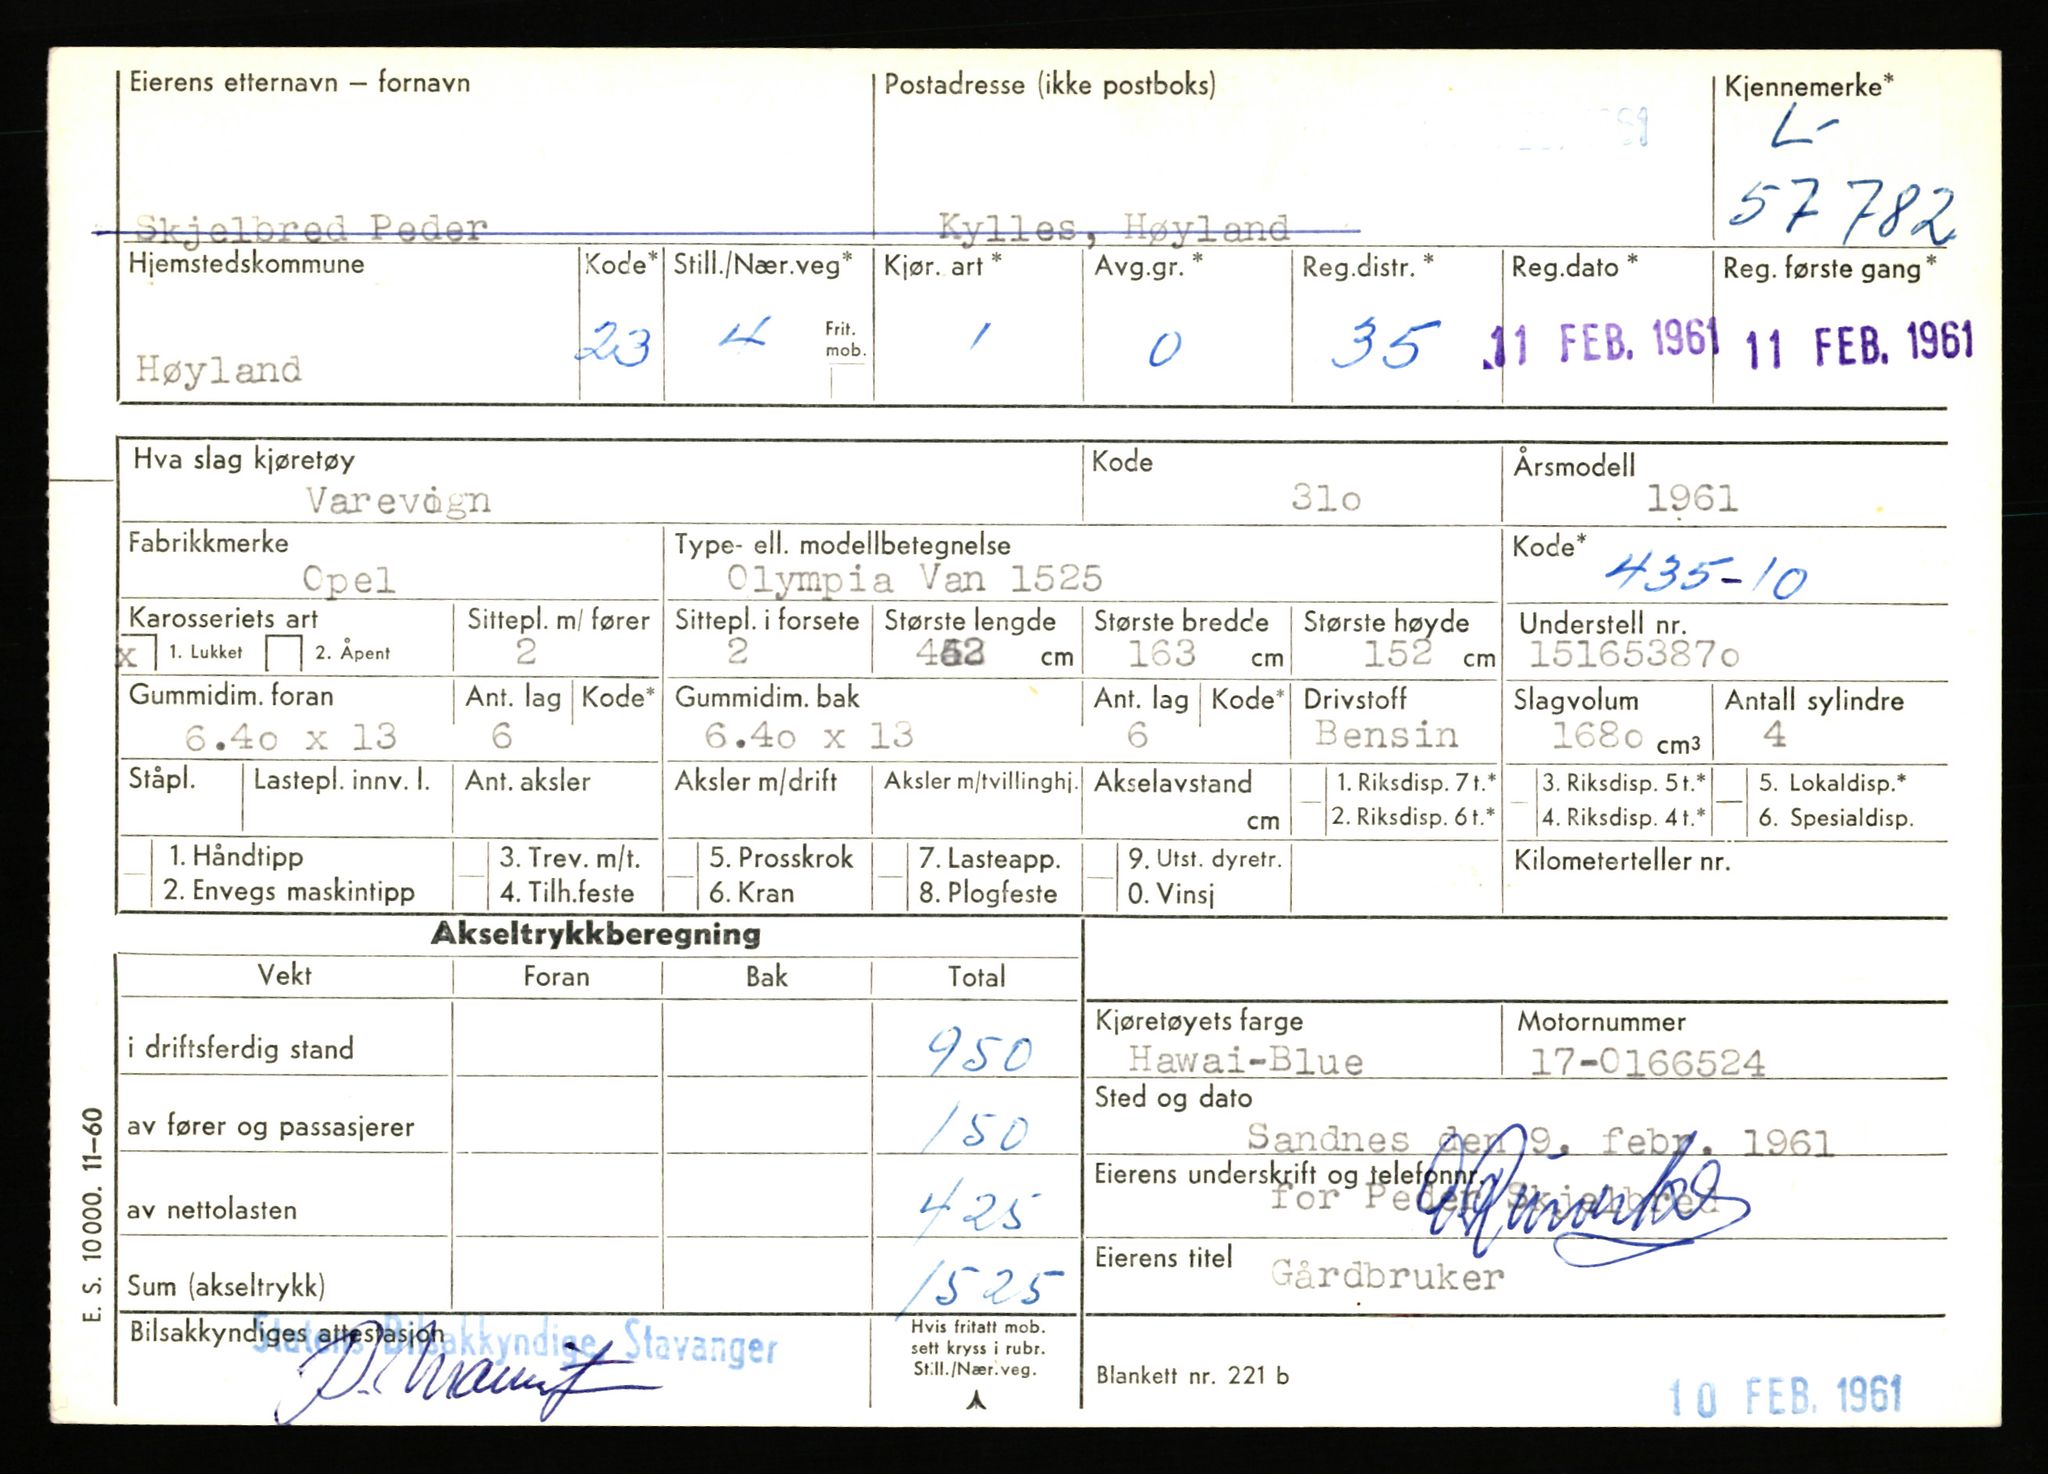 Eierens etternavn – fornavn
Postadresse (ikke postboks)
Kjennemerke*
L-
57782
Skjelbred Peder
Kylles, Høyland
Hjemstedskommune
Kode*
Still./Nær.veg*
Kjør. art *
Avg.gr. *
Reg.distr. *
Reg.dato *
Reg. første gang *
Høyland
23
4
Frit. mob.
1
0
35
11 FEB. 1961
11 FEB. 1961
Hva slag kjøretøy
Kode
Årsmodell
Varevogn
31o
1961
Fabrikkmerke
Type- ell. modellbetegnelse
Kode*
Opel
Olympia Van 1525
435-10
Karosseriets art
Sittepl. m/ fører
Sittepl. i forsete
Største lengde
Største bredde
Største høyde
Understell nr.
x 1. Lukket
2. Åpent
2
2
cm
163 cm
152 cm
15165387o
Gummidim. foran
Ant. lag
Kode*
Gummidim. bak
Ant. lag
Kode*
Drivstoff
Slagvolum
Antall sylindre
6.4o x 13
6
6.4o x 13
6
Bensin
168o cm³
4
Ståpl.
Lastepl. innv. l.
Ant. aksler
Aksler m/drift
Aksler m/tvillinghj.
Akselavstand
cm
1. Riksdisp. 7 t.*
2. Riksdisp. 6 t.*
3. Riksdisp. 5 t.*
4. Riksdisp. 4 t.*
5. Lokaldisp.*
6. Spesialdisp.
1. Håndtipp
2. Envegs maskintipp
3. Trev. m/t.
4. Tilh.feste
5. Prosskrok
6. Kran
7. Lasteapp.
8. Plogfeste
9. Utst. dyretr.
0. Vinsj
Kilometerteller nr.
Akseltrykkberegning
Vekt
Foran
Bak
Total
i driftsferdig stand
950
av fører og passasjerer
150
av nettolasten
425
Sum (akseltrykk)
1525
Kjøretøyets farge
Motornummer
Hawai-Blue
17-0166524
Sted og dato
Sandnes den 9. febr. 1961
Eierens underskrift og telefonnr.
for Peder Skjelbred
Eierens titel
Gårdbruker
Bilsakkyndiges attestasjon
Statens Bilsakkyndige, Stavanger
Hvis fritatt mob.
sett kryss i rubr.
Still./Nær.veg.
Blankett nr. 221 b
10 FEB. 1961
E. S. 10000. 11–60